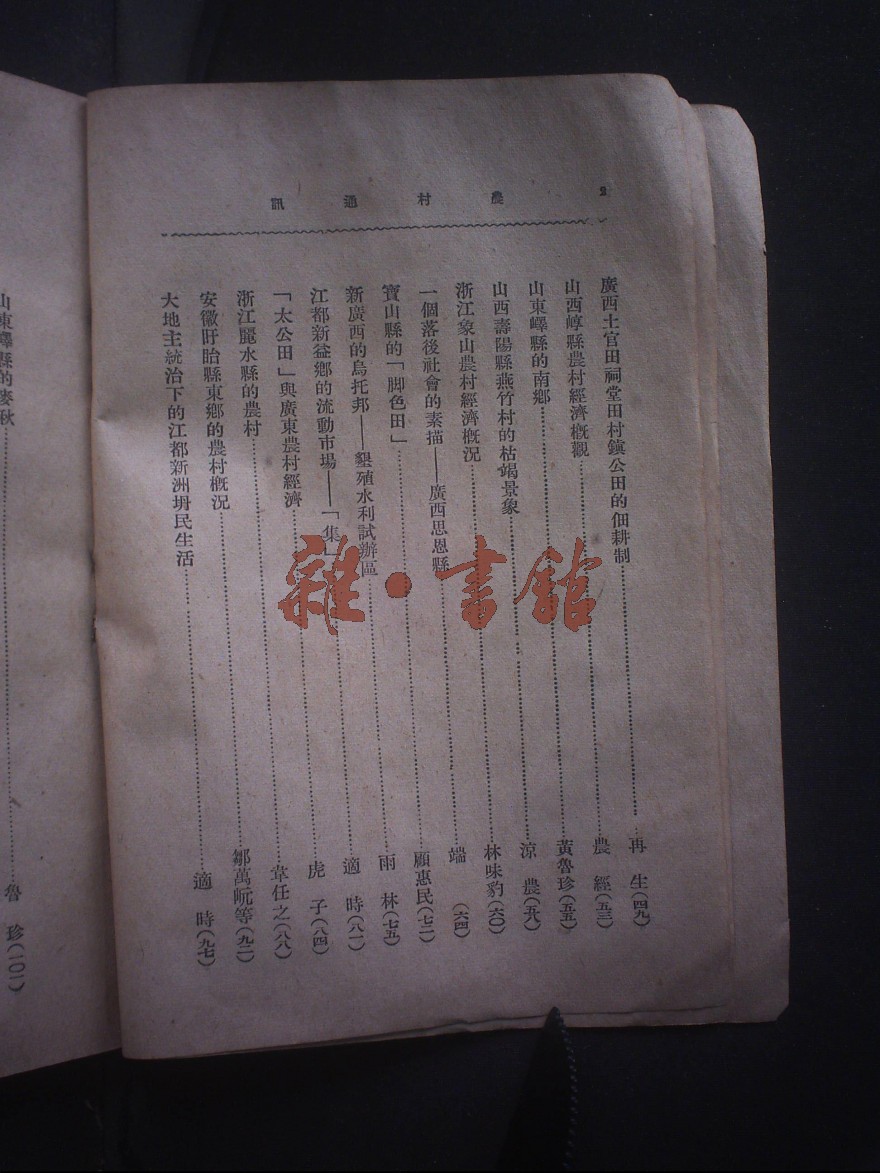 2 農村通訊
廣西土官田祠堂田村鎮公田的佃耕制……再 生(四九)
山西崞縣農村經濟概觀……農 經(五三)
山東嶧縣的南鄉……黃魯珍(五五)
山西壽陽縣燕竹村的枯竭景象……涼 農(五八)
浙江象山農村經濟概況……林味豹(六〇)
一個落後社會的素描——廣西思恩縣……端(六四)
寶山縣的「脚色田」……顧惠民(七二)
新廣西的烏托邦——墾殖水利試辦區……雨 林(七五)
江都新益鄉的流動市場——「集」……適 時(八一)
「太公田」與廣東農村經濟……虎 子(八四)
浙江麗水縣的農村……韋任之(八八)
安徽盱眙縣東鄉的農村概況……鄒萬岏等(九二)
大地主統治下的江都新洲坍民生活……適 時(九七)
山東嶧縣的麥秋……魯 珍(一〇一)
雜·書館